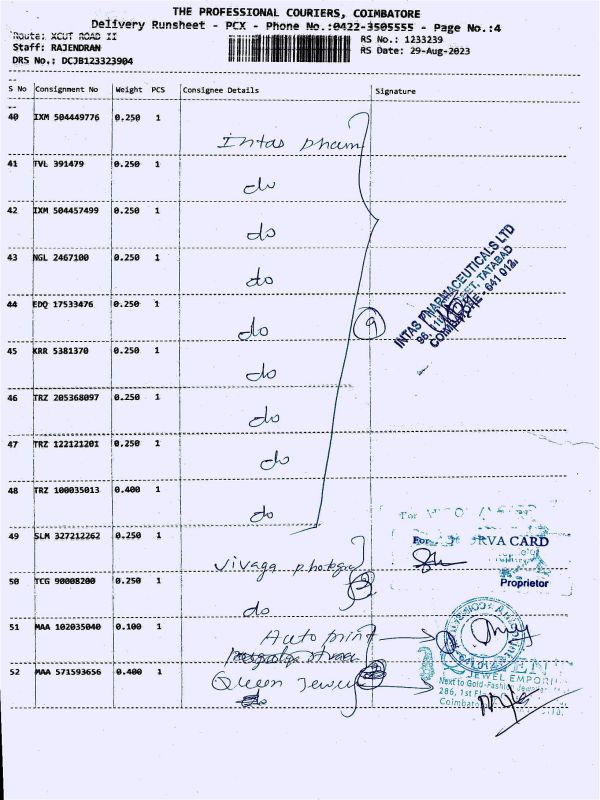 THE PROFESSIONAL COURIERS, COIMBATORE
Delivery Runsheet - PCX - Phone No.:0422-3505555 - Page No.:4
Route: XCUT ROAD II
RS No.: 1233239
Staff: RAJENDRAN
RS Date: 29-Aug-2023
DRS No.: DCJB123323904
S No Consignment No Weight PCS Consignee Details Signature
40 IXM 504449776 0.250 1
Intas pham
41 TVL 391479 0.250 1
do
42 IXM 504457499 0.250 1
do
43 NGL 2467100 0.250 1
do
INTAS PHARMACEUTICALS LTD
TATABAD
COIMBATORE - 641 012.
44 EDQ 17533476 0.250 1
do 9
45 KRR 5381370 0.250 1
do
46 TRZ 205368097 0.250 1
do
47 TRZ 122121201 0.250 1
do
48 TRZ 100035013 0.400 1
do
For
49 SLM 327212262 0.250 1
For RVA CARD
Vivaga
Proprietor
50 TCG 90008200 0.250 1
do
51 MAA 102035040 0.100 1
Auto print
52 MAA 571593656 0.400 1
Queen Jewel
do
JEWEL EMPORI
Next to Gold-Fashi
286, 1st
Coimbato